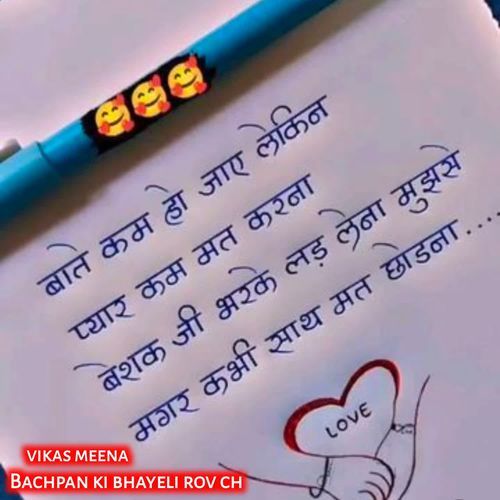 बाते कम हो जाए लेकिन
प्यार कम मत करना
बेशक जी भरके लड़ लेना मुझसे
मगर कभी साथ मत छोडना....
LOVE
VIKAS MEENA
BACHPAN KI BHAYELI ROV CH